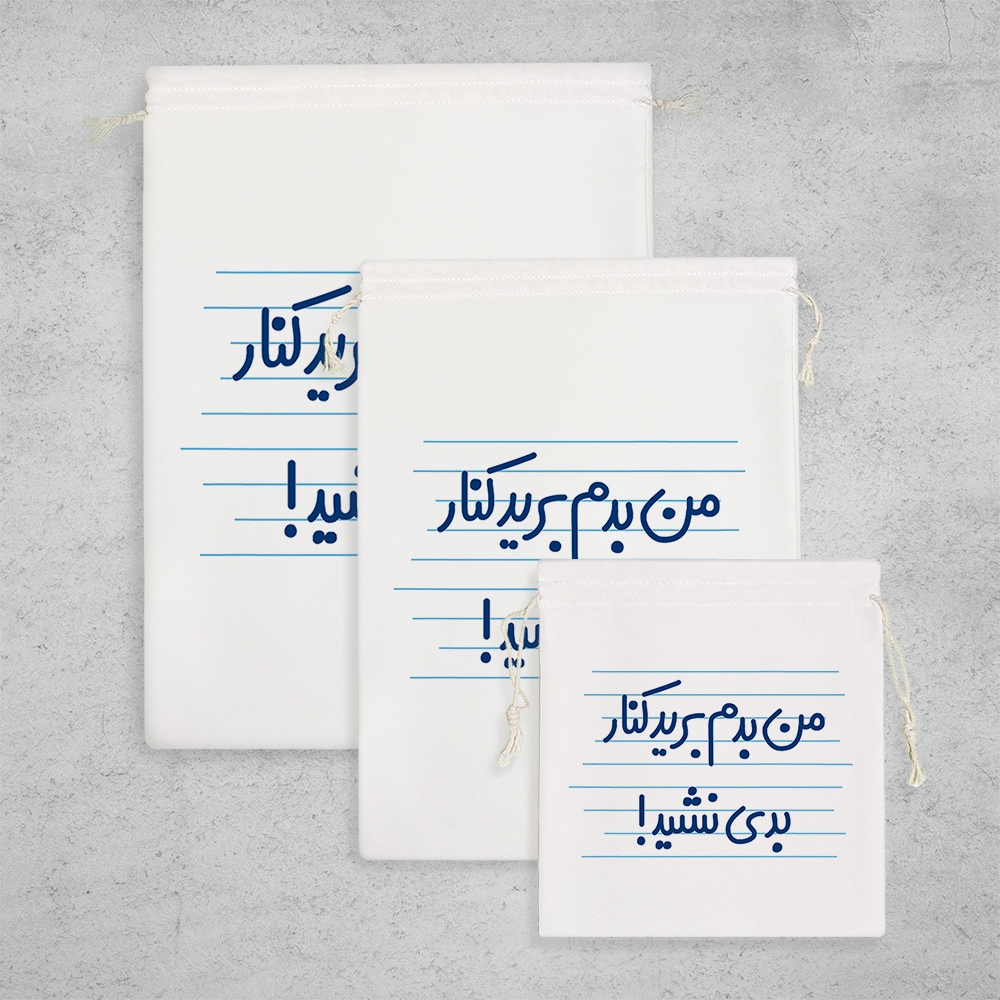 کنار
!
من بدم برید کنار
!
من بدم برید کنار
بدی نشید!